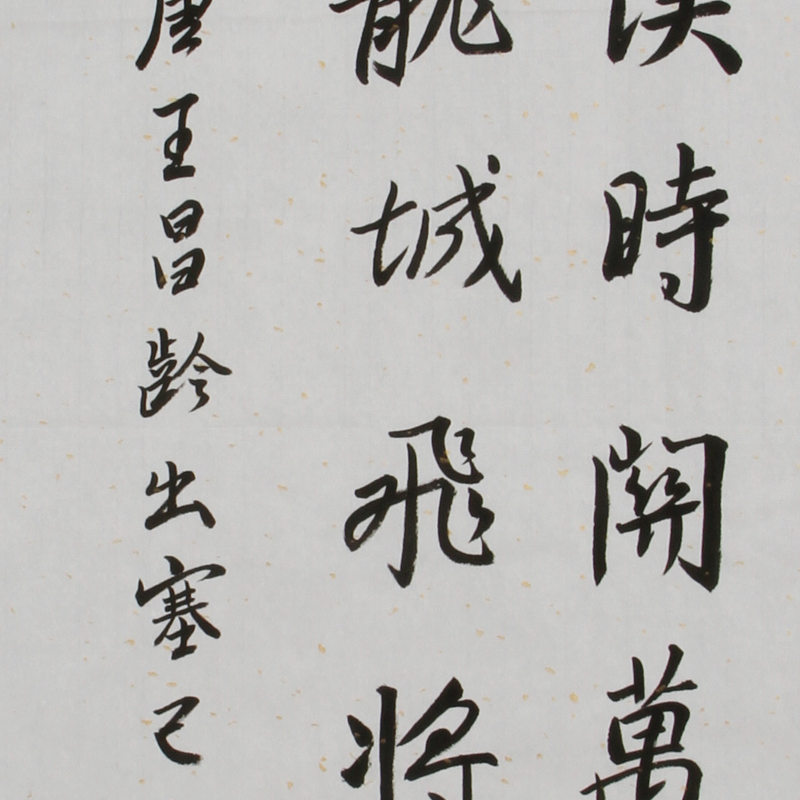 漢時關萬
龍城飛將
唐王昌齡出塞己